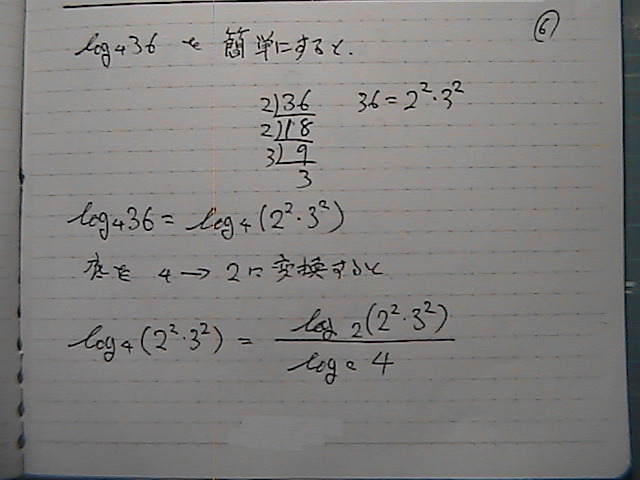 ⑥
log₄36 を 簡単にすると.
2)36 36=2²·3²
2)18
3)9
3
log₄36 = log₄(2²·3²)
底を 4 → 2 に変換すると
log₄(2²·3²) = log₂(2²·3²) / log₂ 4